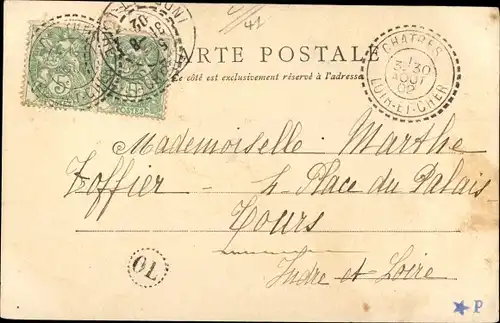 41
CARTE POSTALE
Ce côté est exclusivement réservé à l'adresse
CHATRES
30
AOUT
02
LOIR-ET-CHER
Mademoiselle Marthe
Toffier - 4 Place du Palais
Tours
Indre et Loire
TO
★P